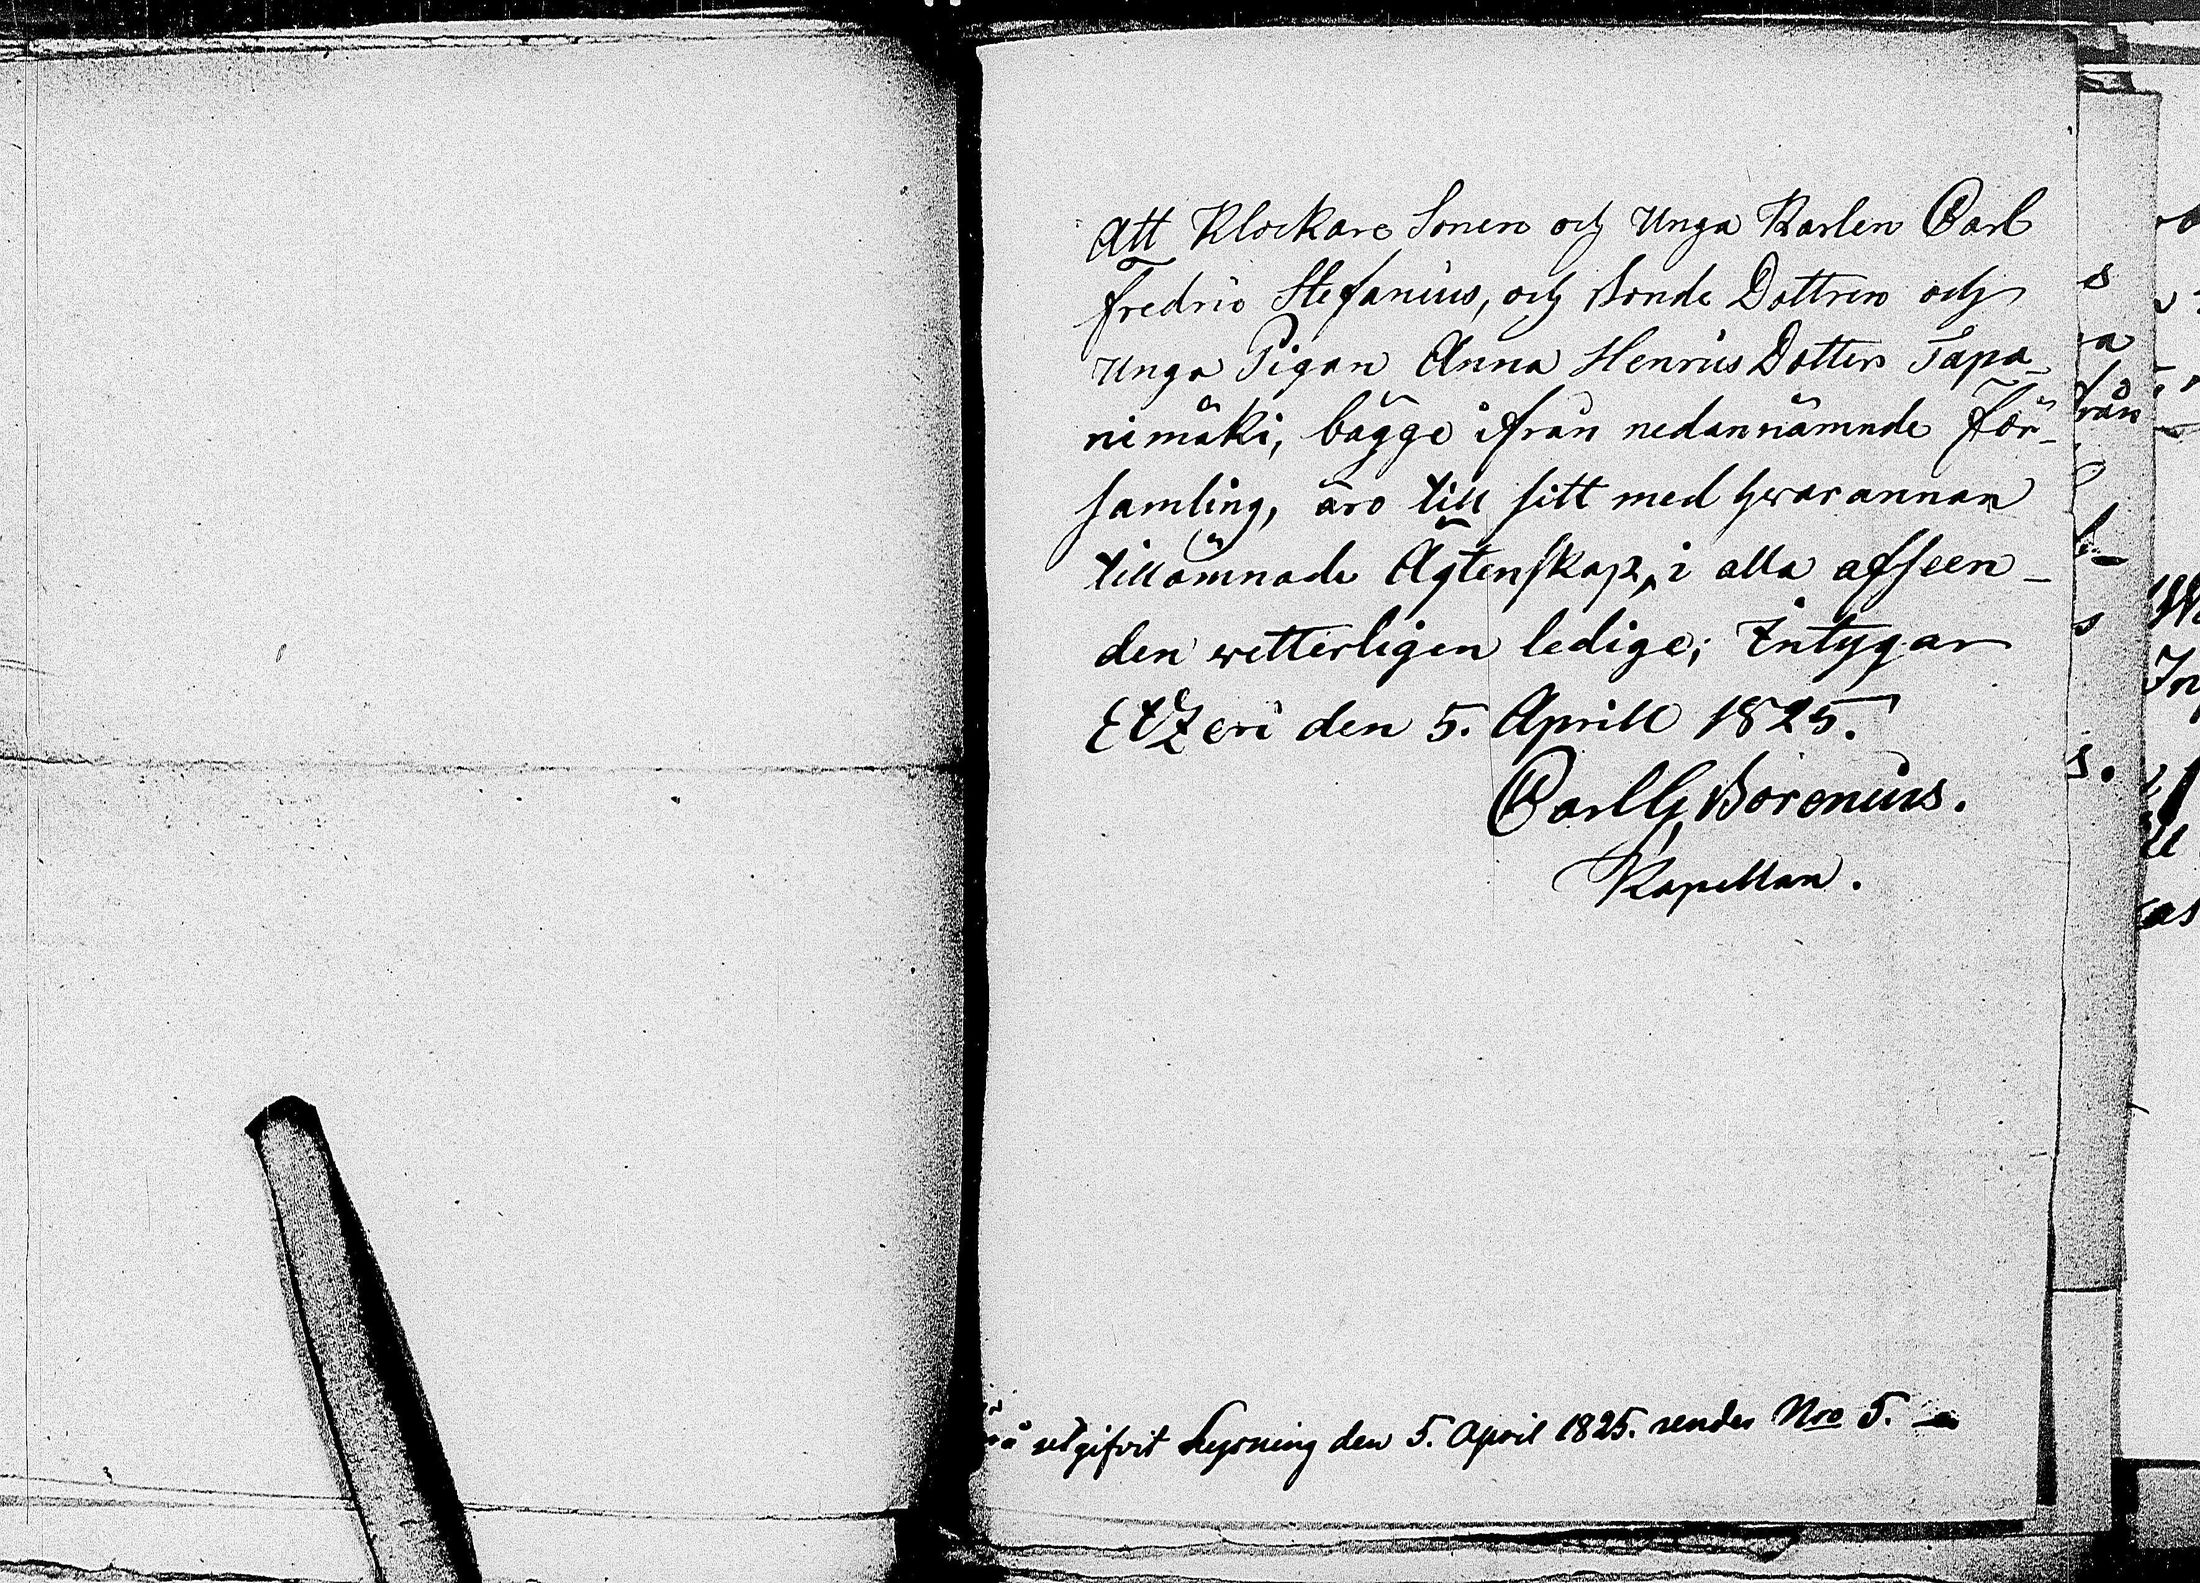 Att Klockare Sonen och Unga Karlen Carl
Fredric Stefanius, och Bonde Dottren och
Unga Pigan Anna Henrics Dotter Tapa-
nimäki, bägge ifrån nedannämnde För-
samling, äro till sitt med hwarannan
tillämnade Ägtenskap, i alla afseen-
den wetterligen ledige; Intygar
Etzeri den 5. Aprill 1825.
Carl G Borenius.
Kapellan.
utgifvit Lysning den 5. April 1825. under Nro 5.